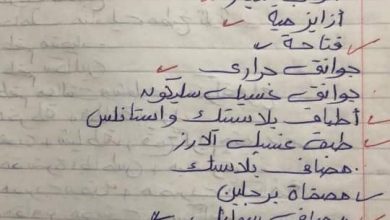 أزايز مية
فتاحة
جوانتى حرارى
جوانتى غسيل سليكون
أطباق بلاستك واستانلس
طبق غسيل الارز
مصاف بلاستك
مصفاة برجلين